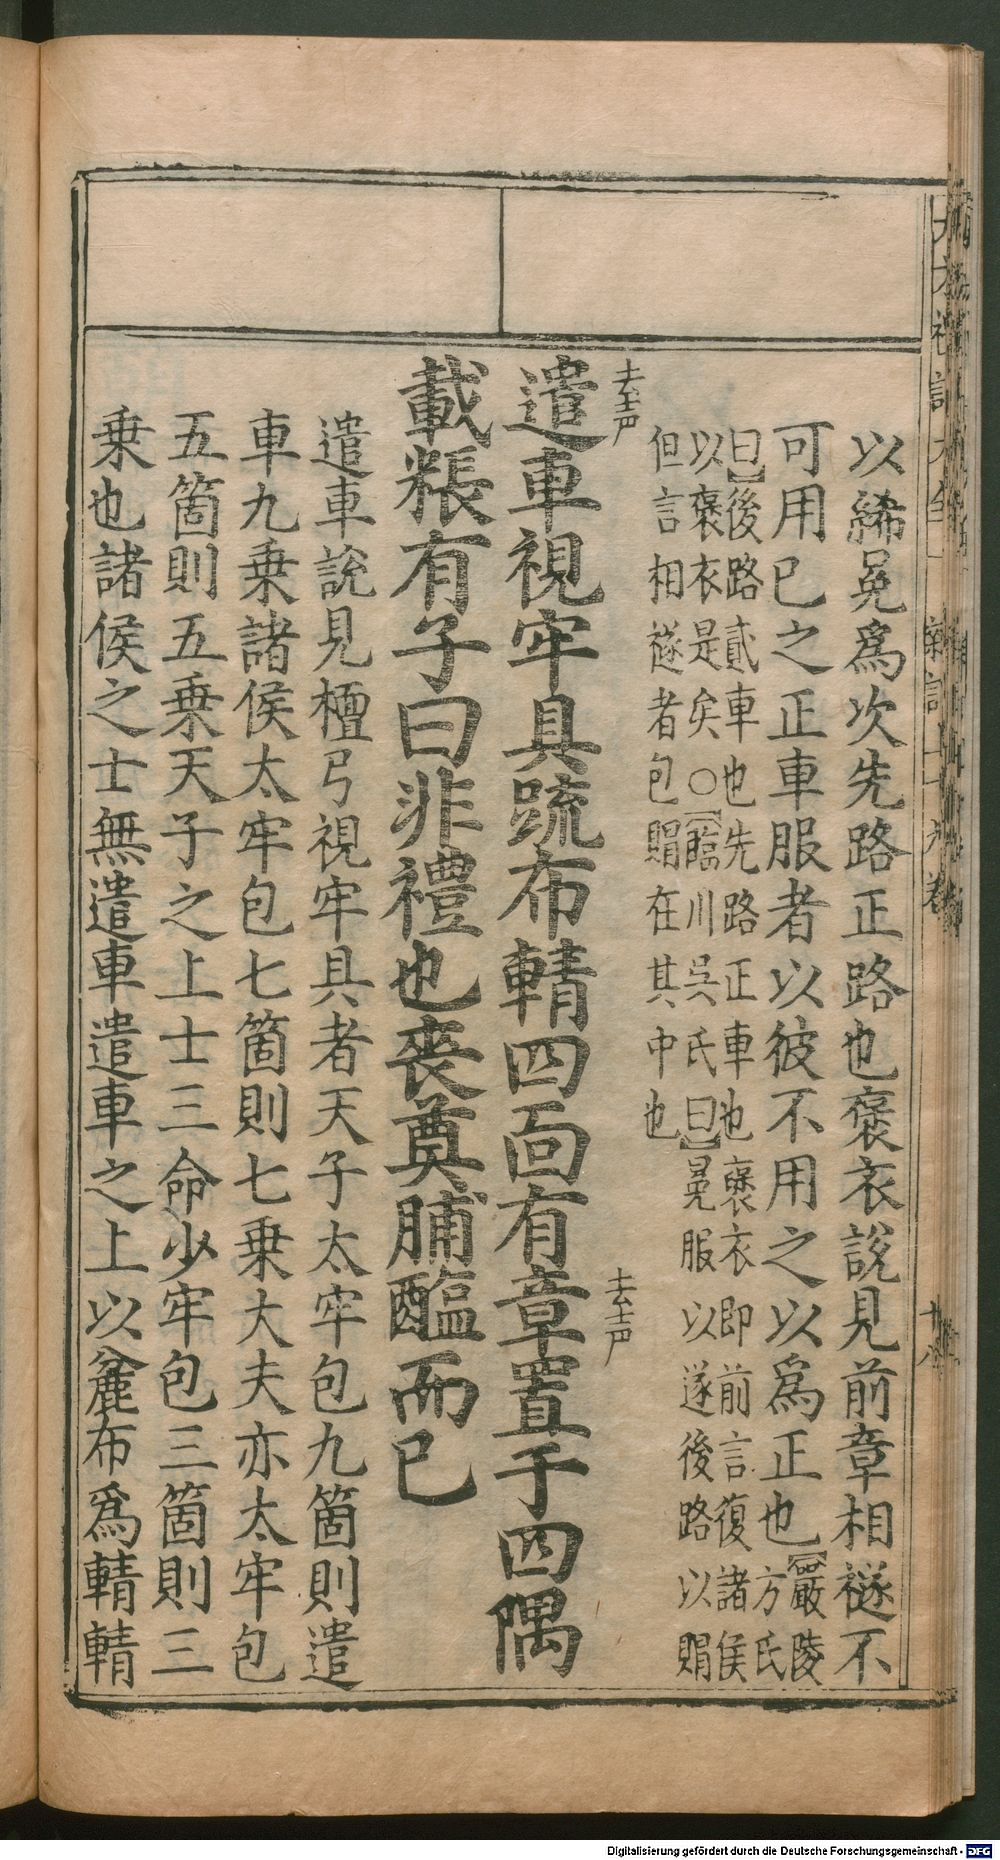 以絺冕爲次先路正路也褒衣說見前章相襚不
可用已之正車服者以彼不用之以爲正也【嚴陵
方氏
曰】後路貳車也先路正車也褒衣即前言復諸侯
以褒衣是矣○【臨川吳氏曰】冕服以遂後路以賵
但言相襚者包賵在其中也
去声
遣車視牢具疏布輤四面有章置于四隅
去声
載粻有子曰非禮也喪奠脯醢而已
遣車說見檀弓視牢具者天子太牢包九箇則遣
車九乘諸侯太牢包七箇則七乘大夫亦太牢包
五箇則五乘天子之上士三命少牢包三箇則三
乘也諸侯之士無遣車遣車之上以麄布爲輤輤
十八
Digitalisierung gefördert durch die Deutsche Forschungsgemeinschaft - DFG